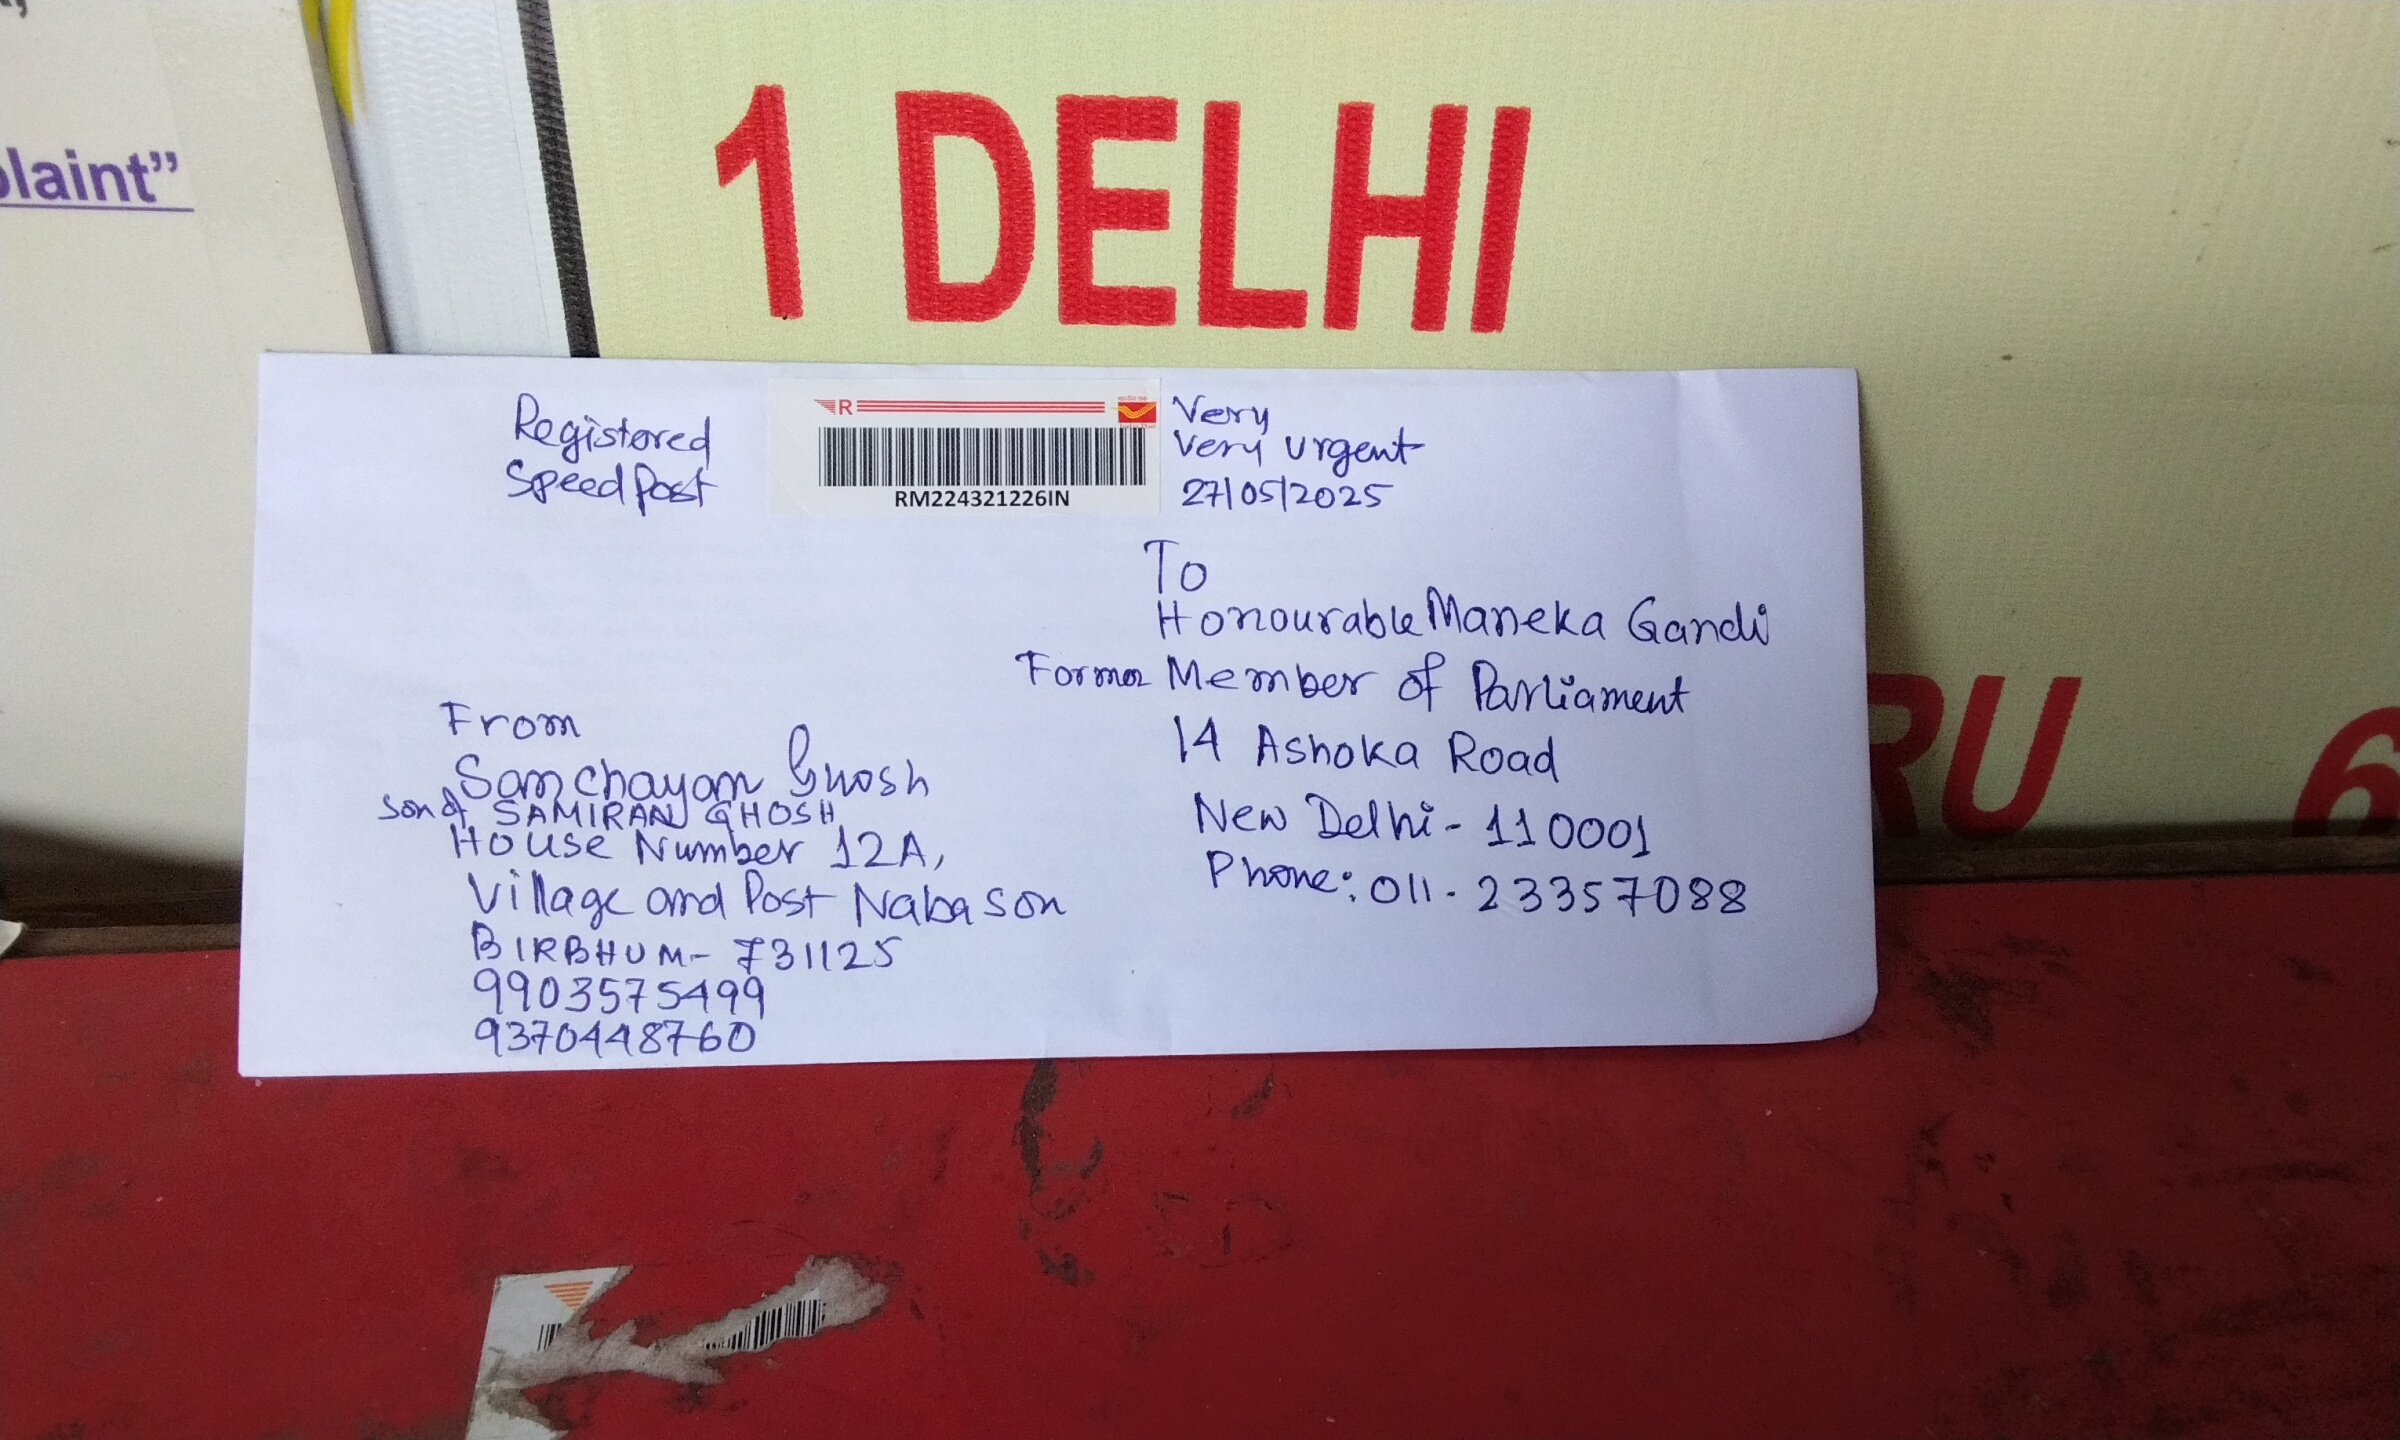 plaint”
1 DELHI
Registered
Speed Post
R
RM224321226IN
Very
Very urgent
27/05/2025
To
Honourable Maneka Gandi
Former Member of Parliament
14 Ashoka Road
New Delhi - 110001
Phone: 011-23357088
From
Sanchayan Ghosh
Son of SAMIRAN GHOSH
House Number 12A,
Village and Post Nabason
BIRBHUM- 731125
9903575499
9370448760
RU
6